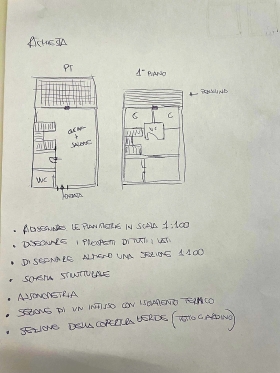 RICHIESTA
PT
1° PIANO
PENSILINA
CUCINA
+
SALONE
C
C
WC
WC
ENTRATA
• RIDISEGNARE LE PIANTINE IN SCALA 1:100
• DISEGNARE I PROSPETTI DI TUTTI I LATI
• DISEGNARE ALMENO UNA SEZIONE 1:100
• SCHEMA STRUTTURALE
• ASSONOMETRIA
• SEZIONE DI UN INFISSO CON ISOLAMENTO TERMICO
• SEZIONE DELLA COPERTURA VERDE (TETTO GIARDINO)